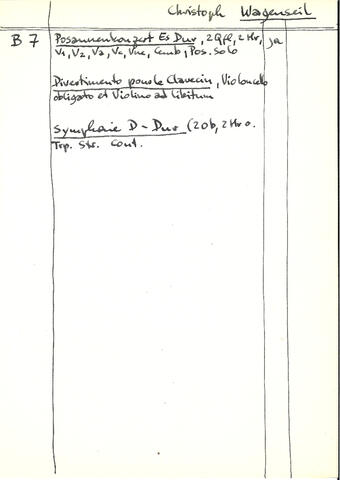 Christoph Wagenseil
B 7 Posaunenkonzert Es Dur, 2 Qfl, 2 Hr, ja
V1, V2, Va, Vc, Vne, Cemb, Pos. Solo
Divertimento pour le Clavecin, Violoncello
obligato et Violino ad libitum
Symphonie D-Dur (2 Ob, 2 Hr o.
Trp. Str. Cont.